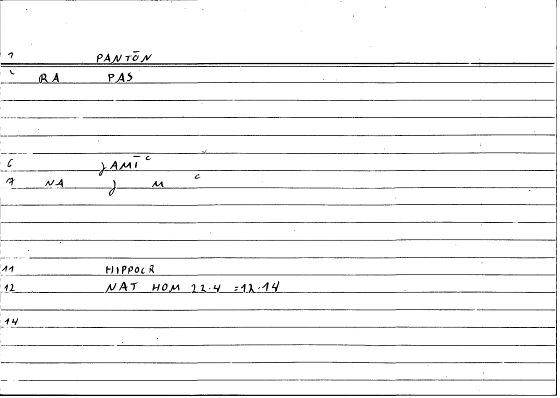 1 PANTŌN
RA PAS
6 JAMĪ c
7 NA J M c
11 HIPPOCR
12 NAT HOM 22.4 =12.14
14